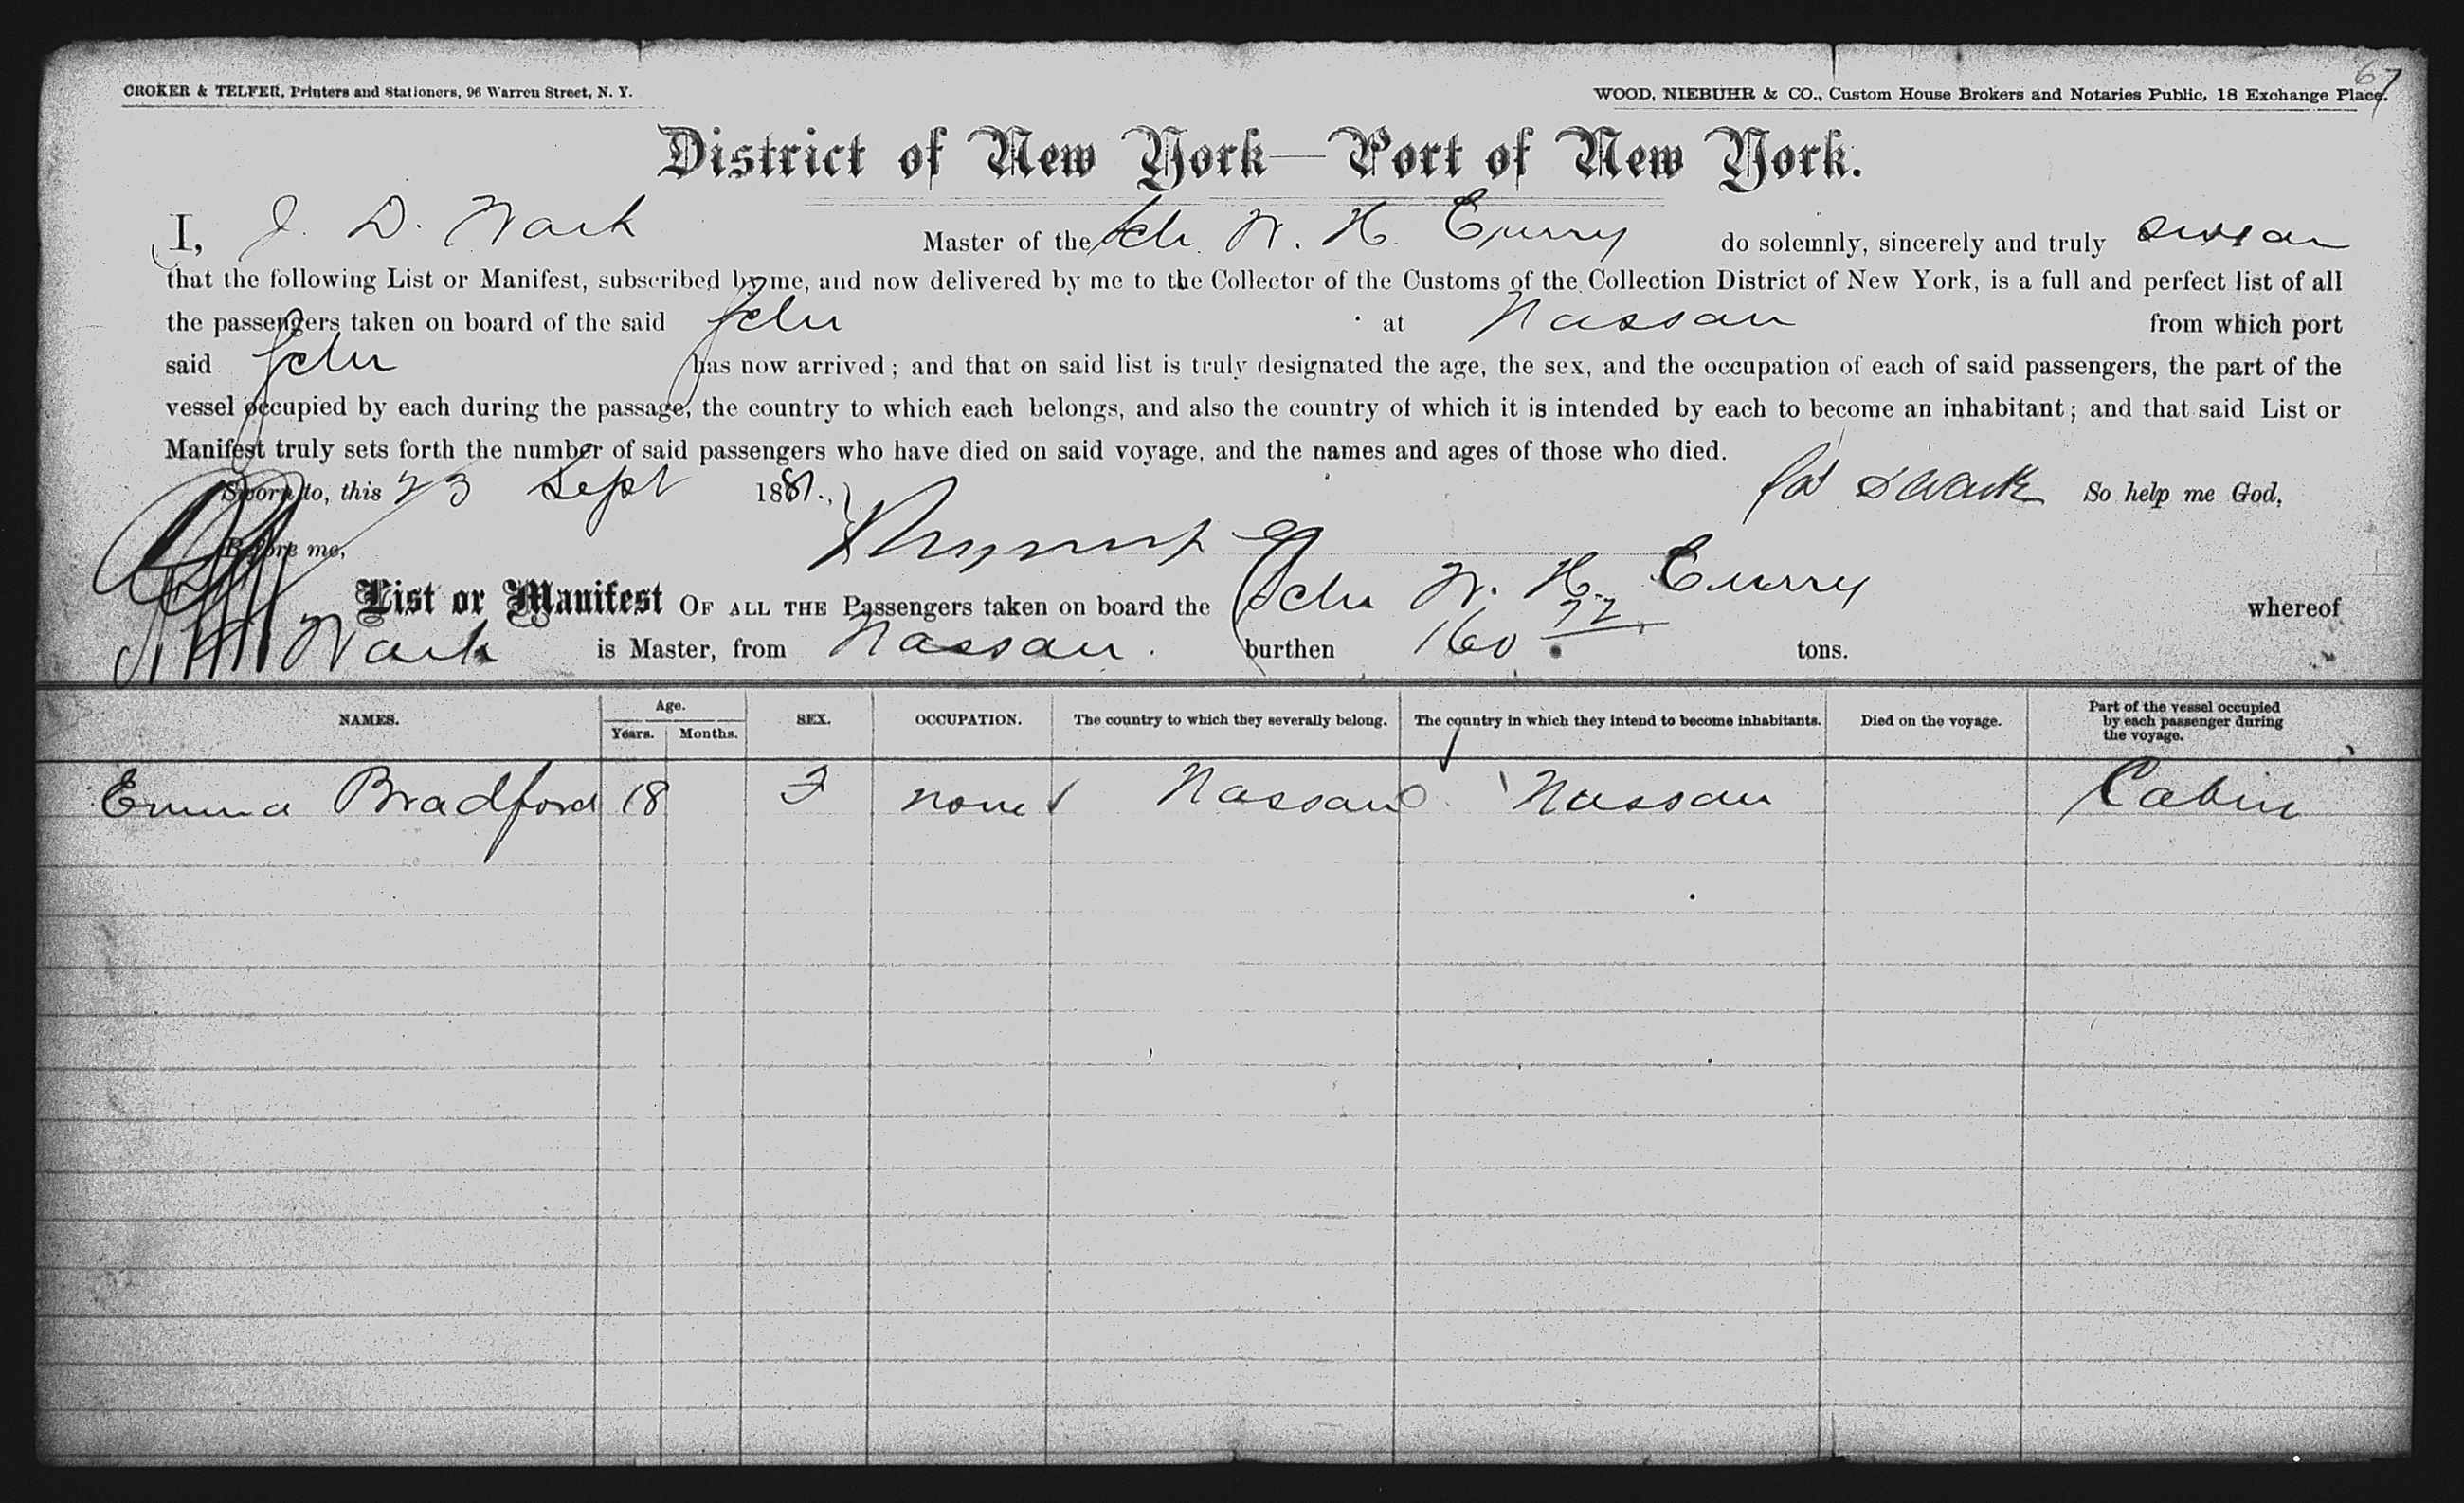 67
CROKER & TELFER, Printers and Stationers, 96 Warren Street, N. Y.
WOOD, NIEBUHR & CO., Custom House Brokers and Notaries Public, 18 Exchange Place.
District of New York—Port of New York.
I, J. D. Wark Master of the Schr. W. H. Curry do solemnly, sincerely and truly swear
that the following List or Manifest, subscribed by me, and now delivered by me to the Collector of the Customs of the Collection District of New York, is a full and perfect list of all
the passengers taken on board of the said Schr at Nassau from which port
said Schr has now arrived; and that on said list is truly designated the age, the sex, and the occupation of each of said passengers, the part of the
vessel occupied by each during the passage, the country to which each belongs, and also the country of which it is intended by each to become an inhabitant; and that said List or
Manifest truly sets forth the number of said passengers who have died on said voyage, and the names and ages of those who died.
Sworn to, this 23 Sept 1881., So help me God,
Before me,
List or Manifest OF ALL THE Passengers taken on board the Schr W. H. Curry whereof
Wark is Master, from Nassau. burthen 160 72 tons.
NAMES. Age. Years. Months. SEX. OCCUPATION. The country to which they severally belong. The country in which they intend to become inhabitants. Died on the voyage. Part of the vessel occupied by each passenger during the voyage.
Emma Bradford 18 F none Nassau Nassau Cabin